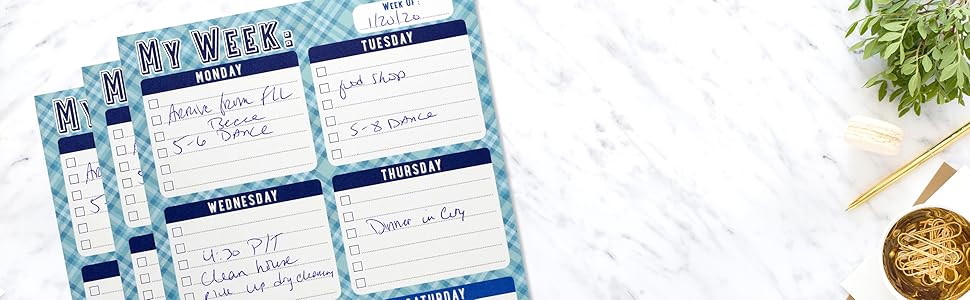 WEEK OF:
1/20/20
MY WEEK:
MONDAY
Arrive from FLL
Becca
5-6 DANCE
TUESDAY
food shop
5-8 DANCE
WEDNESDAY
4:30 P/T
Clean house
Pick up dry cleaning
THURSDAY
Dinner in City
SATURDAY
MY
MY